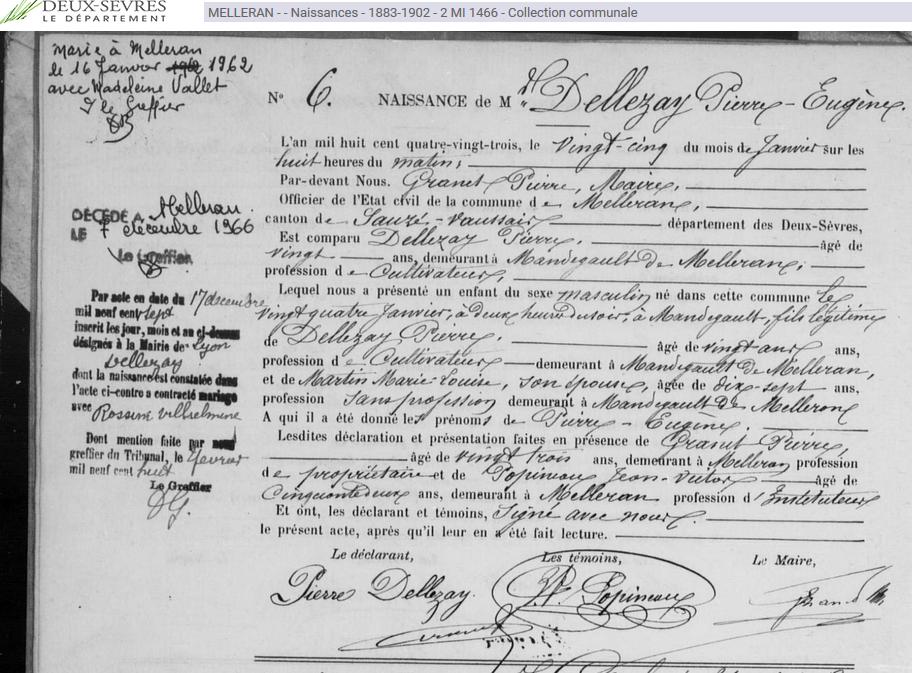 DEUX-SÈVRES
LE DÉPARTEMENT
MELLERAN - - Naissances - 1883-1902 - 2 MI 1466 - Collection communale
Marié à Melleran
le 16 Janvier 1962 1962
avec Madeleine Vallet
le Greffier
N° 6. NAISSANCE de M Dellezay Pierre-Eugène.
L'an mil huit cent quatre-vingt-trois, le vingt-cinq du mois de Janvier sur les
huit heures du matin,
Par-devant Nous. Granet Pierre, Maire,
Officier de l'Etat civil de la commune de Melleran,
canton de Sauzé-Vaussais département des Deux-Sèvres,
Est comparu Dellezay Pierre, âgé de
vingt ans, demeurant à Mandegault de Melleran,
profession de Cultivateur,
Lequel nous a présenté un enfant du sexe masculin né dans cette commune le
vingt quatre Janvier, à deux heures du soir, à Mandegault, fils légitime
de Dellezay Pierre, âgé de vingt ans ans,
profession de Cultivateur demeurant à Mandegault de Melleran,
et de Martin Marie-Louise, son épouse, âgée de dix-sept ans,
profession Sans profession demeurant à Mandegault de Melleran
A qui il a été donné les prénoms de Pierre-Eugène.
Lesdites déclaration et présentation faites en présence de Granet Pierre,
âgé de vingt trois ans, demeurant à Melleran profession
de propriétaire et de Popineau Jean-Victor âgé de
Cinquante deux ans, demeurant à Melleran profession d'Instituteur
Et ont, les déclarant et témoins, signé avec nous.
le présent acte, après qu'il leur en a été fait lecture.
Le déclarant, Les témoins, Le Maire,
Pierre Dellezay. Popineau
DÉCÉDÉ A Melleran
LE 7 décembre 1966
Le Greffier
Par acte en date du 17 décembre
mil neuf cent sept
inscrit les jour, mois et an ci-dessus
désignés à la Mairie de Lyon
Dellezay
dont la naissance est constatée dans
l'acte ci-contre a contracté mariage
avec Rossini Vilhelmine
Dont mention faite par nous
greffier du Tribunal, le février
mil neuf cent huit
Le Greffier